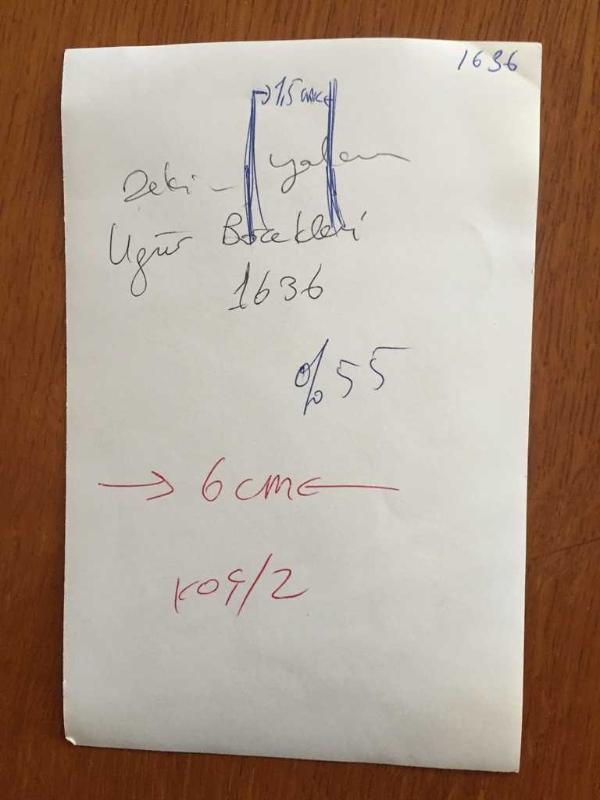 1636
→ 1,5 cm ←
Zeki - yalan
Uğur Böcekleri
1636
%55
→ 6 cm ←
KOÇ/2